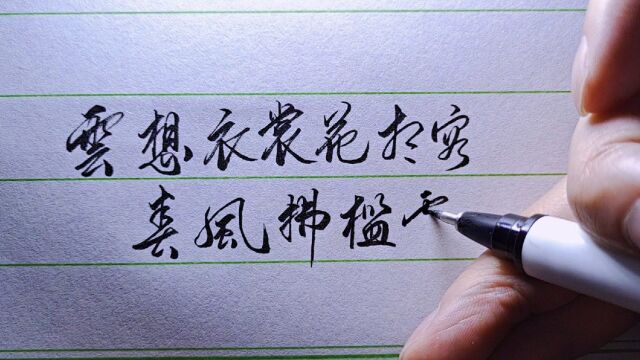 雲想衣裳花想容
春風拂檻